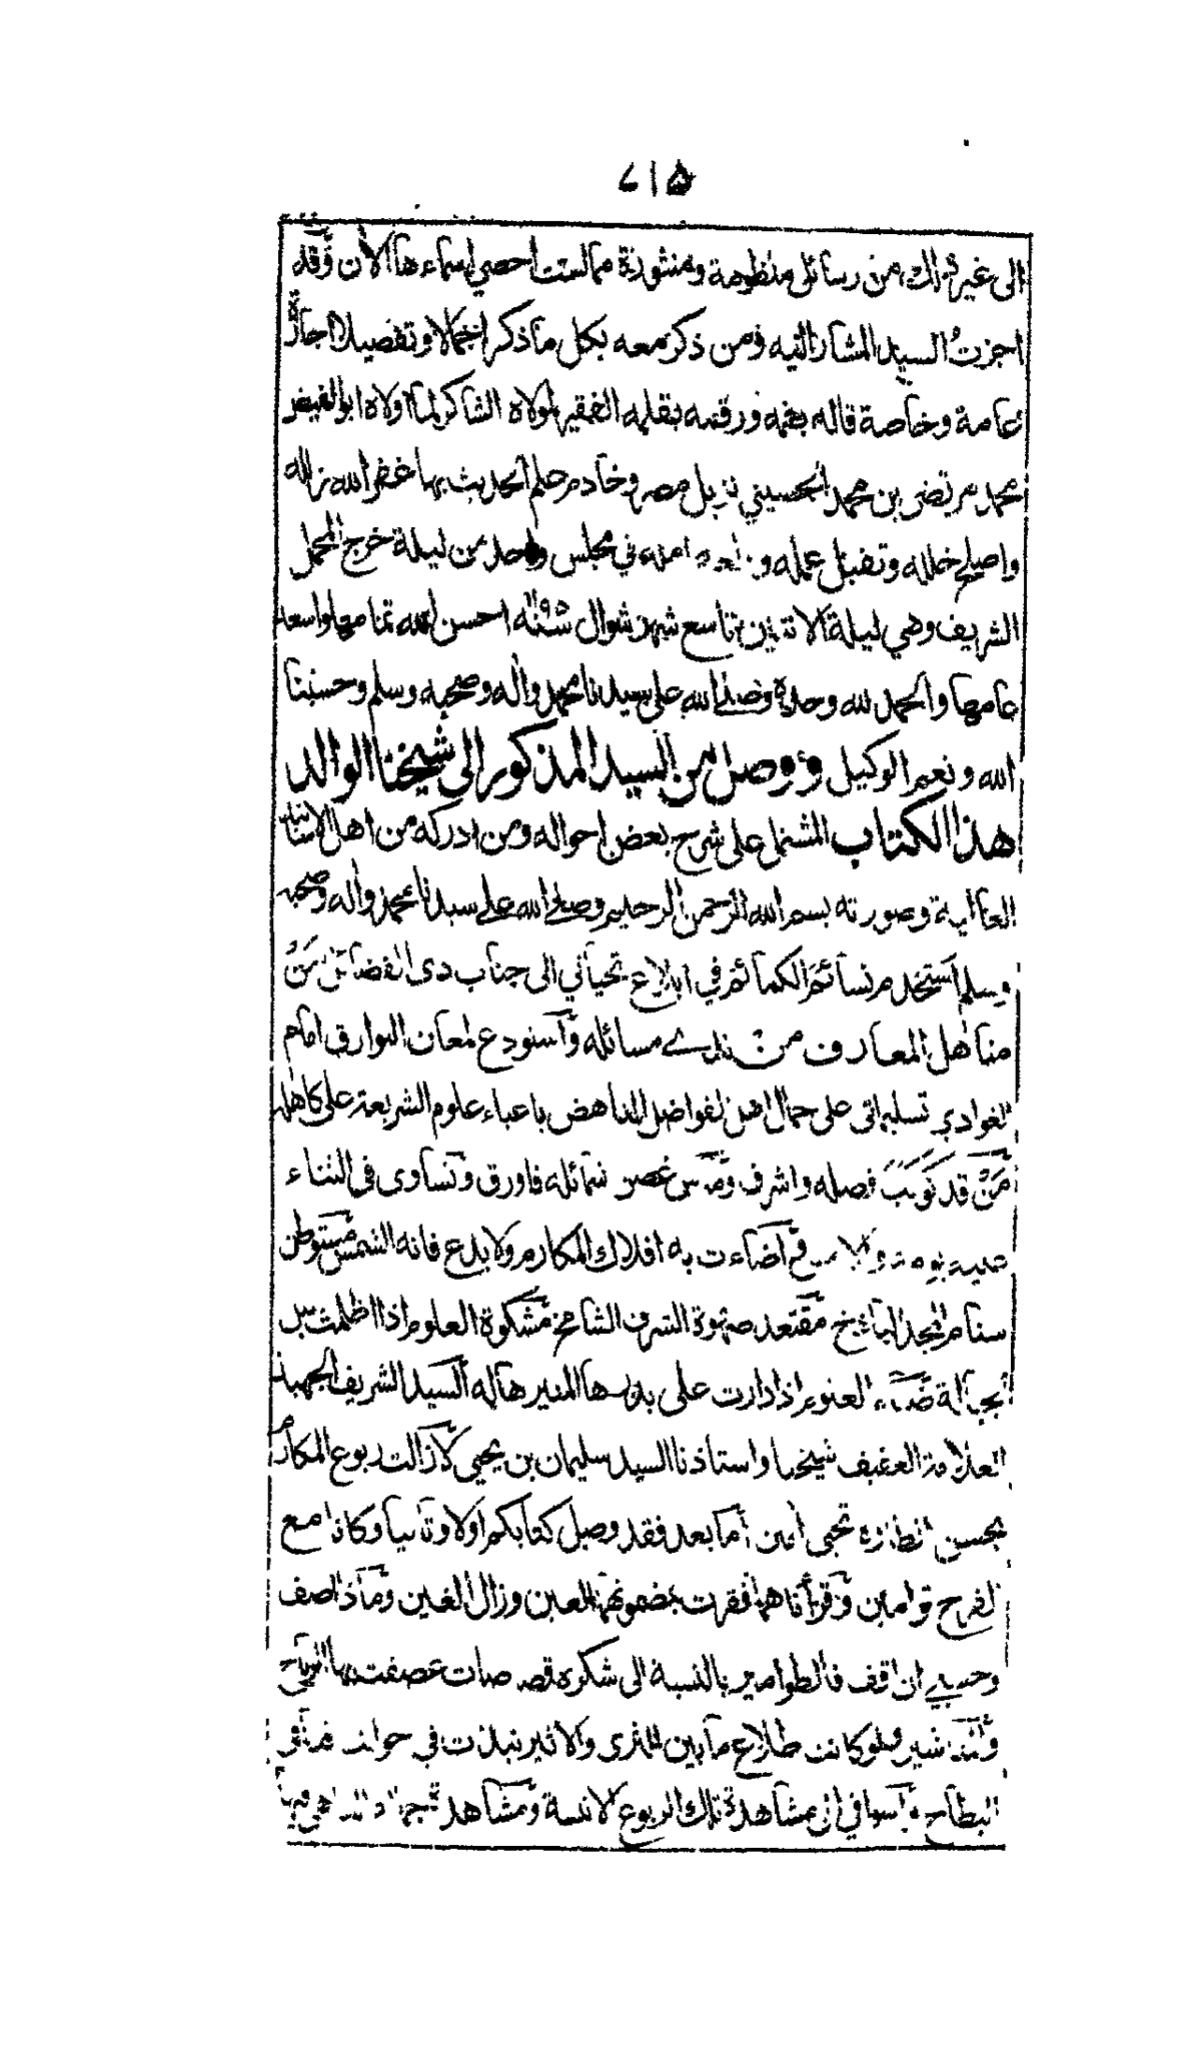 ٧١٥
الى غير ذلك من رسائل منظومة ومنثورة مما لست احصي اسماءها الآن وقد
اجزتُ السيد المشار اليه ومن ذكر معه بكل ما ذكر اجمالا وتفصيلا اجازة
عامة وخاصة قاله بفمه ورقمه بقلمه الفقير لمولاه الشاكر لما اولاه ابو الفيض
محمد مرتضى بن محمد الحسيني نزيل مصر وخادم علم الحديث بها غفر الله زلله
واصلح خلله وتقبل عمله امله في مجلس واحد من ليلة خرج المحمل
الشريف وهي ليلة الاثنين تاسع شهر شوال سنة احسن الله تمامها واسعد
عامها والحمد لله وحده وصلى الله على سيدنا محمد وآله وصحبه وسلم وحسبنا
الله ونعم الوكيل ووصل من السيد المذكور الى شيخنا الوالد
هذا الكتاب المشتمل على شرح بعض احواله ومن ادركه من اهل الاسانيد
العالية وصورته بسم الله الرحمن الرحيم وصلى الله على سيدنا محمد وآله وصحبه
وسلم استخدم نسائم الكمائم في ابلاغ تحياتي الى جناب ذى الفضائل مَنْ
مناهل المعارف من مسائله وأستودع لمعان البوارق امام
الغوادي تسليماتى على جمال اهل الفواضل الناهض باعباء علوم الشريعة على كاهله
مَنْ قد فضله واشرف وماس غصن شمائله فاورق وتساوى فى الثناء
أضاءت به افلاك المكارم ولا بدع فانه الشمس مستوطن
سنام المجد الباذخ مقتعد صهوة الشرف الشامخ مشكوة العلوم اذا اظلمت
اذا دارت على بدرها المنير هاله السيد الشريف الجهبذ
العلامة العفيف شيخنا واستاذنا السيد سليمان بن يحيى لا زالت ربوع المكارم
بحسن تحيى امين أما بعد فقد وصل كتابكم اولا وثانيا وكانا مع
الفرح توامين وقرأناهما فقرت بمضمونهما العين وزال الغين وماذا اصف
وحسبي ان اقف فالطوامير بالنسبة الى شكره عصفت بها الرياح
ولو كانت طلاع ما بين الثرى والاثير نبذت في
البطاح أسوافي ان مشاهدة تلك الربوع لانسة ومشاهد